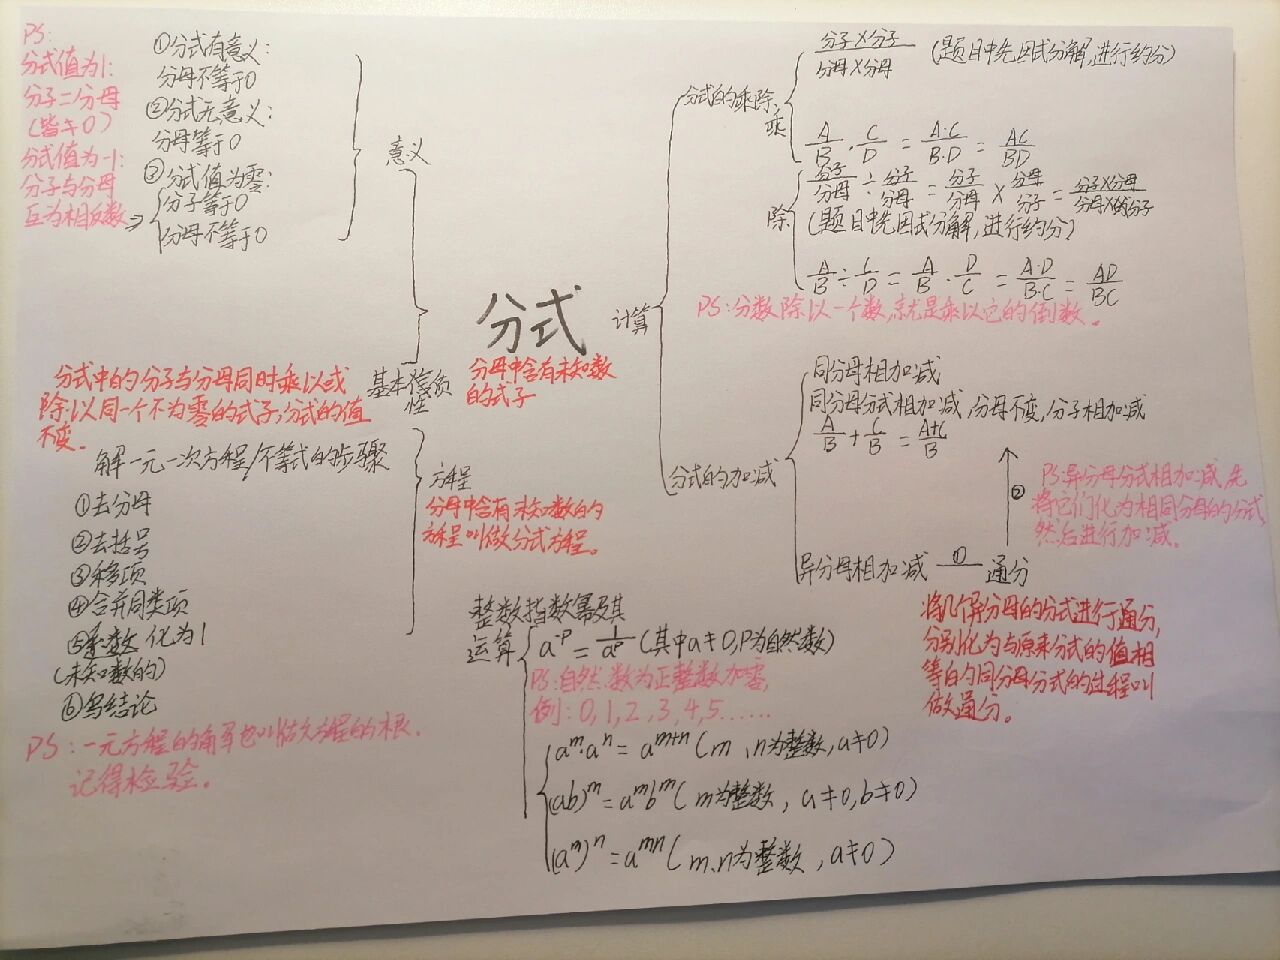 PS:
分式值为1:
分子=分母
(皆≠0)
分式值为-1:
分子与分母
互为相反数
①分式有意义:
分母不等于0
②分式无意义:
分母等于0
③分式值为零:
分子等于0
分母不等于0
意义
分式
分母中含有未知数
的式子
基本性质
分式中的分子与分母同时乘以或
除以同一个不为零的式子,分式的值
不变.
方程
分母中含有未知数的
方程叫做分式方程。
解一元一次方程/不等式的步骤
①去分母
②去括号
③移项
④合并同类项
⑤系数化为1
(未知数的)
⑥写结论
PS:一元方程的解也叫做方程的根.
记得检验。
计算
分式的乘除
乘
分子×分子/分母×分母 (题目中先因式分解,进行约分)
A/B·C/D=A·C/B·D=AC/BD
除
分子/分母÷分子/分母=分子/分母×分母/分子=分子×分母/分母×分子
(题目中先因式分解,进行约分)
A/B÷C/D=A/B·D/C=A·D/B·C=AD/BC
PS:分数除以一个数,就是乘以它的倒数。
分式的加减
同分母相加减
同分母分式相加减,分母不变,分子相加减
A/B+C/B=A+C/B
异分母相加减 ① 通分
②
PS:异分母分式相加减,先
将它们化为相同分母的分式,
然后进行加减.
将几个异分母的分式进行通分,
分别化为与原来分式的值相
等的同分母分式的过程叫
做通分。
整数指数幂及其
运算
a⁻ᵖ=1/aᵖ(其中a≠0,P为自然数)
PS:自然数为正整数加零,
例:0,1,2,3,4,5……
aᵐ·aⁿ=aᵐ⁺ⁿ(m、n为整数,a≠0)
(ab)ᵐ=aᵐbᵐ(m为整数,a≠0,b≠0)
(aᵐ)ⁿ=aᵐⁿ(m、n为整数,a≠0)